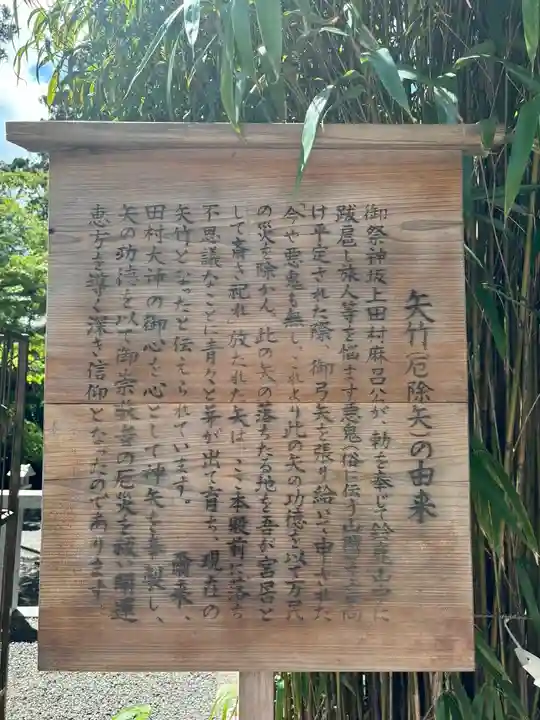 矢竹（厄除矢）の由来
御祭神坂上田村麻呂公が、勅を奉じて鈴鹿山中に
跋扈し旅人等を悩ます悪鬼（俗に伝う山賊）を
け平定された際、御弓矢を張り給いて申された
「今や悪鬼も無し、これより此の矢の功徳を以て万民
の災を除かん、此の矢の落ちたる地を吾が宮居と
して斎き祀れ」放たれた矢は、ここ本殿前に落ち
不思議なことに青々と芽が出て育ち、現在の
矢竹となったと伝えられています。　爾来、
田村大神の御心を心として神矢を奉製し、
矢の功徳を以て御崇敬者の厄災を祓い開運
恵方を導く深き信仰となったのであります。